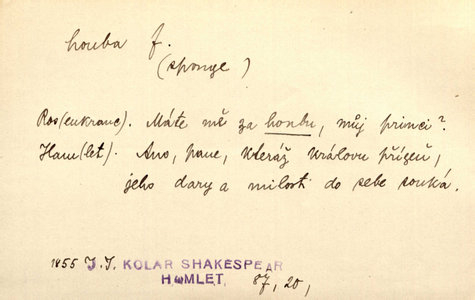 houba f.
(sponge)
Ros(enkranc). Máte mě za houbu, můj princi?
Ham(let). Ano, pane, kteráž královu přízeň,
jeho dary a milosti do sebe souká.
1855 J. J. KOLAR SHAKESPEAR
HAMLET 87, 20,